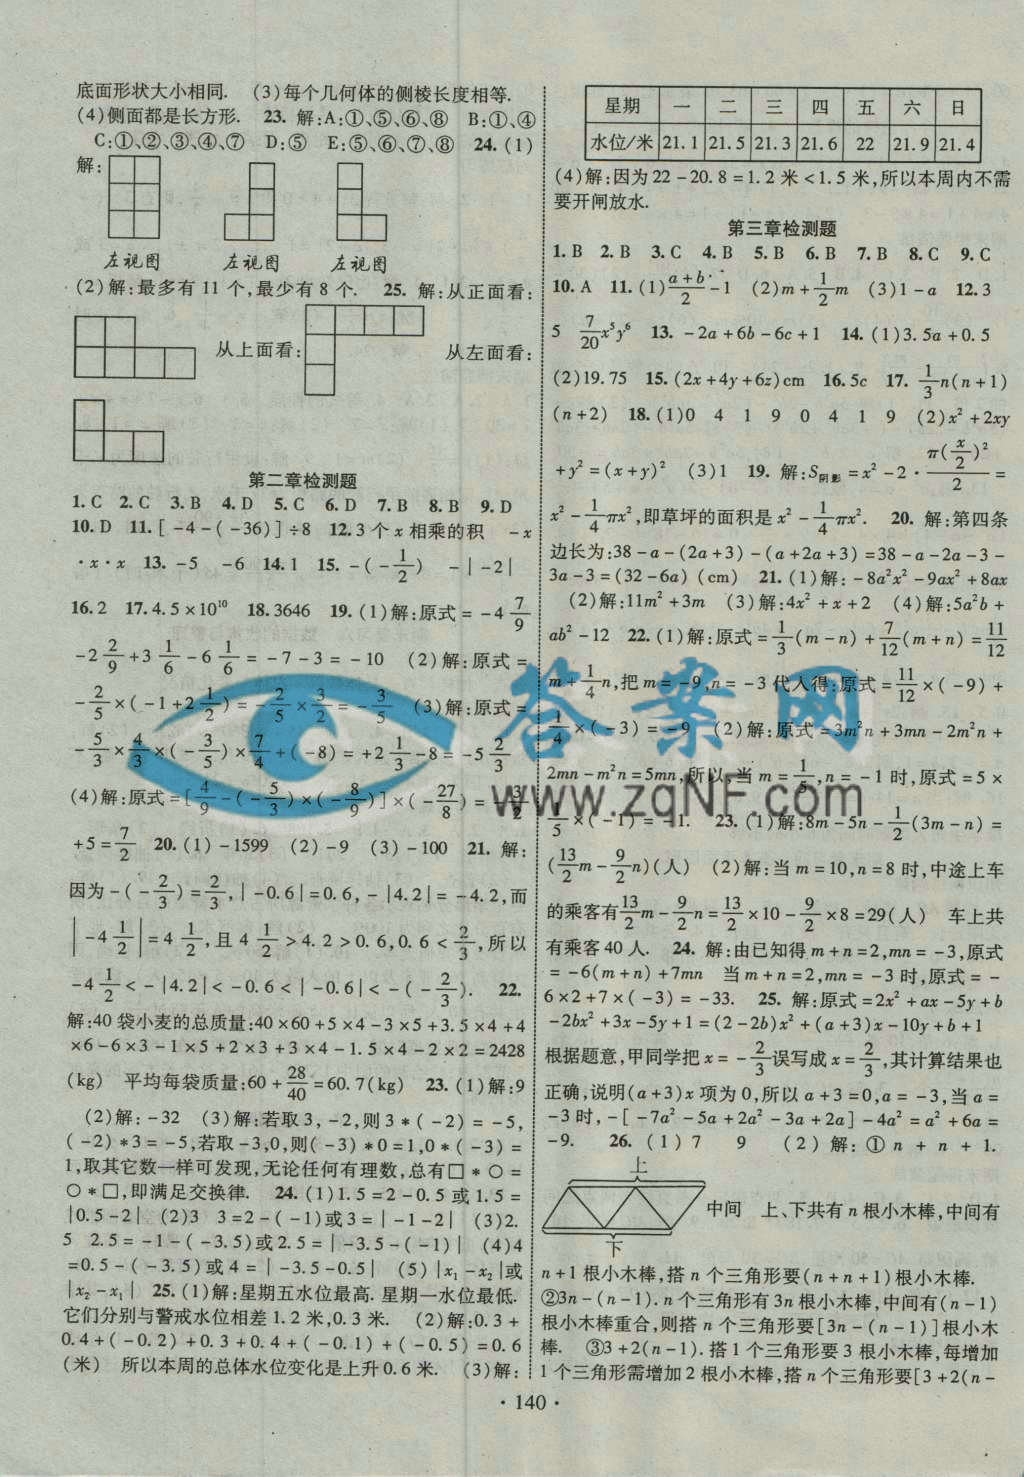 底面形状大小相同. (3)每个几何体的侧棱长度相等.
(4)侧面都是长方形. 23. 解:A:①、⑤、⑥、⑧ B:①、④
C:①、②、③、④、⑦ D:⑤ E:⑤、⑥、⑦、⑧ 24. (1)
解:
左视图 左视图 左视图
(2)解:最多有 11 个,最少有 8 个. 25. 解:从正面看:
从上面看: 从左面看:
第二章检测题
1. C 2. C 3. B 4. D 5. C 6. D 7. B 8. B 9. D
10. D 11. [ -4-(-36)]÷8 12. 3 个 x 相乘的积 -x
·x·x 13. -5 -6 14. 1 15. -(-1/2) -|-2|
16. 2 17. 4.5×10^10 18. 3646 19. (1)解:原式=-4 7/9
-2 2/9+3 1/6-6 1/6=-7-3=-10 (2)解:原式=
-2/5×(-1+2 1/2)=-2/5×3/2=-3/5 (3)解:原式=
-5/3×4/3×(-3/5)×7/4+(-8)=+2 1/3-8=-5 2/3
(4)解:原式=[4/9-(-5/3)×(-8/9)]×(-27/8)=-3/2
+5=7/2 20. (1)-1599 (2)-9 (3)-100 21. 解:
因为-(-2/3)=2/3,|-0.6|=0.6,-|4.2|=-4.2,而
|-4 1/2|=4 1/2,且 4 1/2>4.2>0.6,0.6<2/3,所以
-4 1/2<-|4.2|<-0.6<|-0.6|<-(-2/3). 22.
解:40 袋小麦的总质量:40×60+5×4-3×5+3.5×4+4
×6-6×3-1×5+2×3+3×4-1.5×4-2×2=2428
(kg) 平均每袋质量:60+28/40=60.7(kg) 23. (1)解:9
(2)解:-32 (3)解:若取3,-2,则3*(-2)=-5,
(-2)*3=-5,若取-3,0,则(-3)*0=1,0*(-3)=
1,取其它数一样可发现,无论任何有理数,总有□*○=
○*□,即满足交换律. 24. (1)1.5=2-0.5 或1.5=
|0.5-2| (2)3 3=2-(-1)或3=|-1-2| (3)2.
5 2.5=-1-(-3.5)或2.5=|-3.5-(-1)| (4)4
=0.5-(-3.5)或4=|-3.5-0.5| (5)|x₁-x₂|或
|x₂-x₁| 25. (1)解:星期五水位最高. 星期一水位最低.
它们分别与警戒水位相差1.2 米,0.3 米. (2)解:0.3+
0.4+(-0.2)+0.3+0.4+(-0.1)+(-0.5)=0.6
(米) 所以本周的总体水位变化是上升0.6 米. (3)解:
星期 一 二 三 四 五 六 日
水位/米 21.1 21.5 21.3 21.6 22 21.9 21.4
(4)解:因为22-20.8=1.2 米<1.5 米,所以本周内不需
要开闸放水.
第三章检测题
1. B 2. B 3. C 4. B 5. B 6. B 7. B 8. C 9. C
10. A 11. (1)(a+b)/2-1 (2)m+1/2m (3)1-a 12. 3
5 7/20x⁵y⁶ 13. -2a+6b-6c+1 14. (1)3.5a+0.5
(2)19.75 15. (2x+4y+6z)cm 16. 5c 17. 1/3n(n+1)
(n+2) 18. (1)0 4 1 9 0 4 1 9 (2)x²+2xy
+y²=(x+y)² (3)1 19. 解:S阴影=x²-2·π(x/2)²/2=
x²-1/4πx²,即草坪的面积是x²-1/4πx². 20. 解:第四条
边长为:38-a-(2a+3)-(a+2a+3)=38-a-2a-3-
3a-3=(32-6a)(cm) 21. (1)解:-8a²x²-9ax²+8ax
(2)解:11m²+3m (3)解:4x²+x+2 (4)解:5a²b+
ab²-12 22. (1)解:原式=1/3(m-n)+7/12(m+n)=11/12
m+1/4n,把m=-9,n=-3 代入得:原式=11/12×(-9)+
1/4×(-3)=-9 (2)解:原式=3m²n+3mn-2m²n+
2mn-m²n=5mn,所以,当m=1/5,n=-1 时,原式=5×
1/5×(-1)=-1. 23. (1)解:8m-5n-1/2(3m-n)=
(13/2m-9/2n)(人) (2)解:当m=10,n=8 时,中途上车
的乘客有13/2m-9/2n=13/2×10-9/2×8=29(人) 车上共
有乘客40 人. 24. 解:由已知得m+n=2,mn=-3,原式
=-6(m+n)+7mn 当m+n=2,mn=-3 时,原式=-
6×2+7×(-3)=-33. 25. 解:原式=2x²+ax-5y+b
-2bx²+3x-5y+1=(2-2b)x²+(a+3)x-10y+b+1
根据题意,甲同学把x=-2/3误写成x=2/3,其计算结果也
正确,说明(a+3)x 项为0,所以a+3=0,a=-3,当a=
-3 时,-[-7a²-5a+2a²-3a+2a]-4a²=a²+6a=
-9. 26. (1)7 9 (2)解:①n+n+1.
上
中间 上、下共有n 根小木棒,中间有
下
n+1 根小木棒,搭n 个三角形要(n+n+1)根小木棒.
②3n-(n-1). n 个三角形有3n 根小木棒,中间有(n-1)
根小木棒重合,则搭n 个三角形要[3n-(n-1)]根小木
棒. ③3+2(n-1). 搭1 个三角形要3 根小木棒,每增加
1 个三角形需增加2 根小木棒,搭n 个三角形要[3+2(n-
·140·
答案网
www.zqNF.com